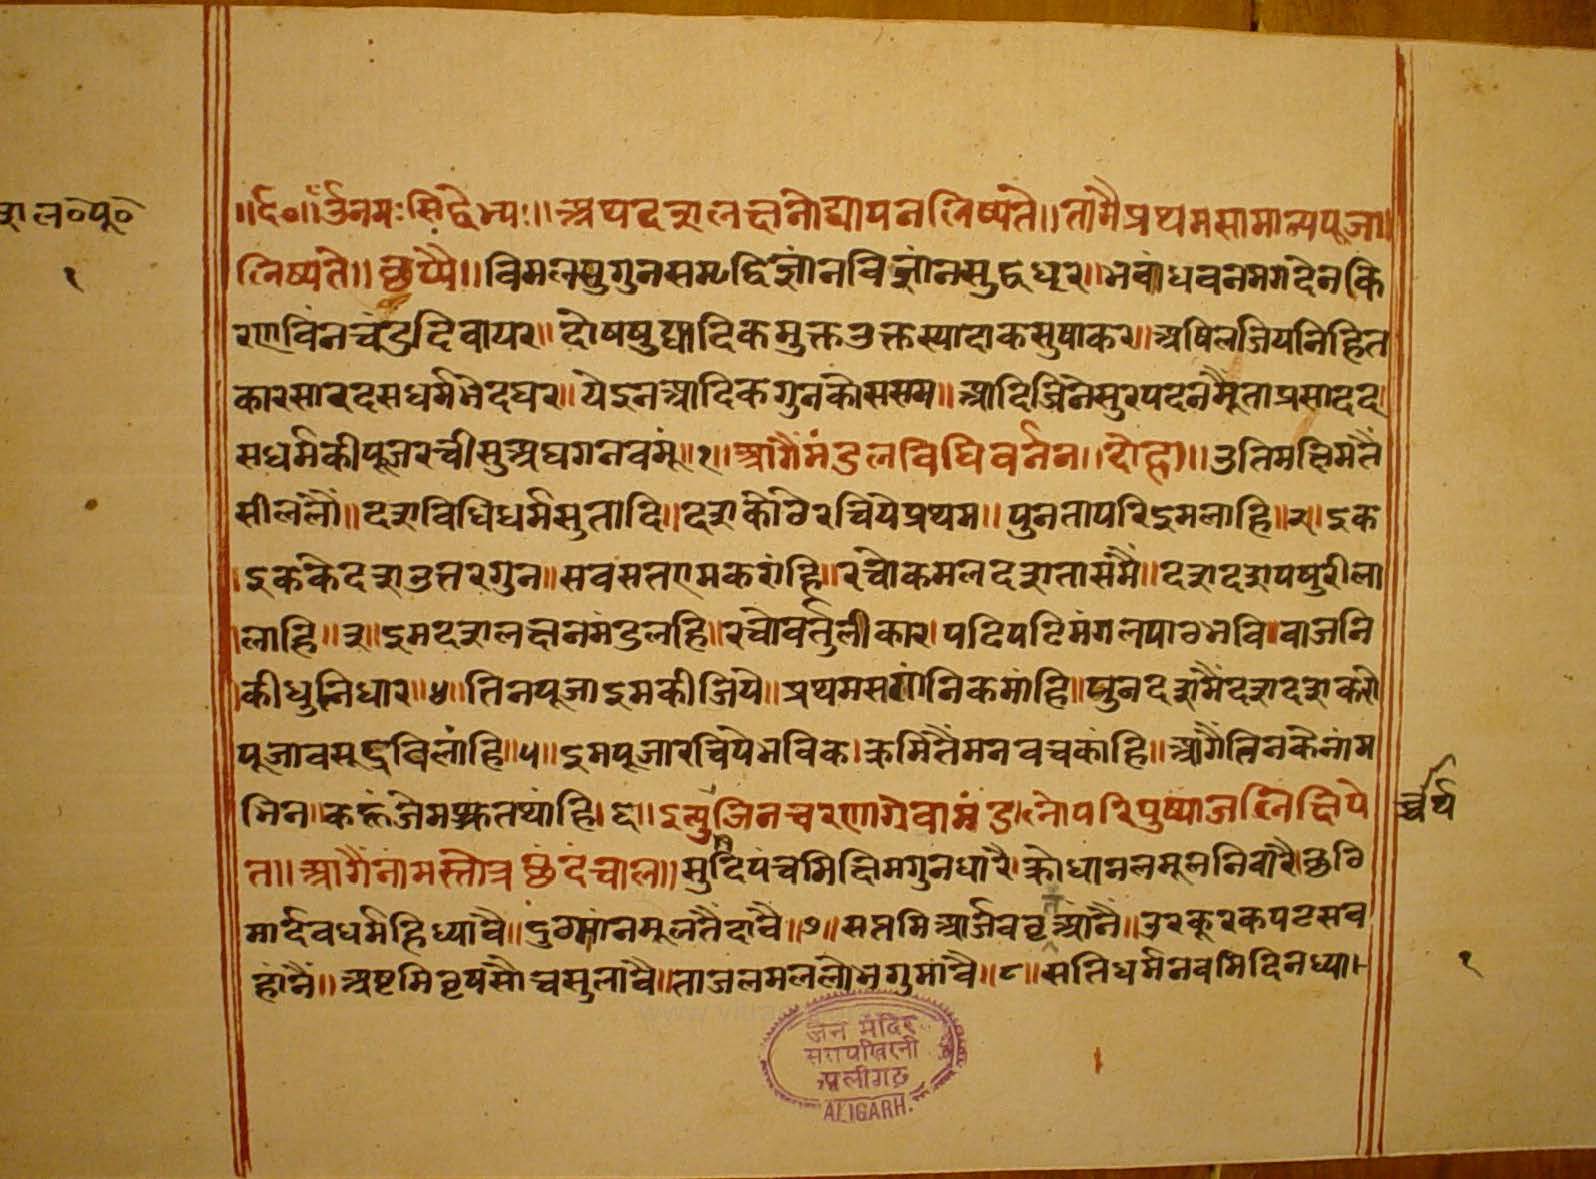 दशल०पू०
१
॥र्द०॥ ॐनमःसिद्धेभ्यः॥ अथदशलक्षनोद्यापनलिष्यते॥ तामैप्रथमसामान्यपूजा॥
लिष्यते॥ छप्पै॥ विमलसुगुनसमृद्धिज्ञांनविज्ञांनसुद्धधर॥ भवांधवनमगदेनकि
रणविनचंद्रदिवायर॥ दोषषुद्यादिकमुक्तउक्तस्यादाकसुषाकर॥ अषिलजियनिहित
कारसारदसधर्मभेदघर॥ येइनआदिकगुनकोससम॥ आदिजिनेसुरपदनमूंताप्रसादद
सधर्मकीपूजरचीसुअघगनवमूं॥१॥ आगैमंडलविधिवर्नन॥ दोहा॥ उतिमछिमतैं
सीललौं॥ दशविधिधर्मसुतादि॥ दशकोठेरचियेप्रथम॥ पुनतापरिइमलाहि॥२॥ इक
इककेदशउत्तरगुन॥ सवसतएमकरांहि॥ रचोकमलदशतासमैं॥ दशदशपषुरीला
लाहि॥३॥ इमदशलक्षनमंडलहि॥ रचोवर्तुलीकार॥ पदिपटिमंगलपाठभवि॥ वाजनि
कीधुनिधार॥४॥ तिनपूजाइमकीजिये॥ प्रथमसगांनिकमांहि॥ पुनदशमैंदशदशकरो
पूजावसुद्रविलांहि॥५॥ इमपूजारचियेभविक॥ क्रमितैमनवचकांहि॥ आगैतिनकेनांम
भिन॥ कहूंजेमप्रकतथांहि॥६॥ इत्युजिनचरणाग्रेवामंडलोपरिपुष्पाजलिंक्षिपे
त॥ आगैनांमस्तोत्र छंदचाल॥ सुदिपंचमिछिमगुनधारै॥ क्रोधानलमूलनिवारै॥ छठि
मार्दवधर्महिध्यांवै॥ दुठमांनमूलतैंदावै॥७॥ सप्तमिआर्जववृतआंनै॥ उरकूरकपटसव
हांनै॥ अष्टमिवृषसौचसुलावै॥ ताजलमललोभगुमांवै॥८॥ सतिधर्मनवमिदिनध्या
र्च्चर्य
१
जैन मंदिर
अलीगढ़
ALIGARH.